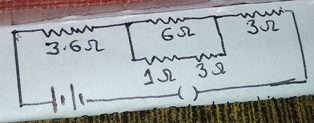 3.6Ω 6Ω 3Ω
1Ω 3Ω